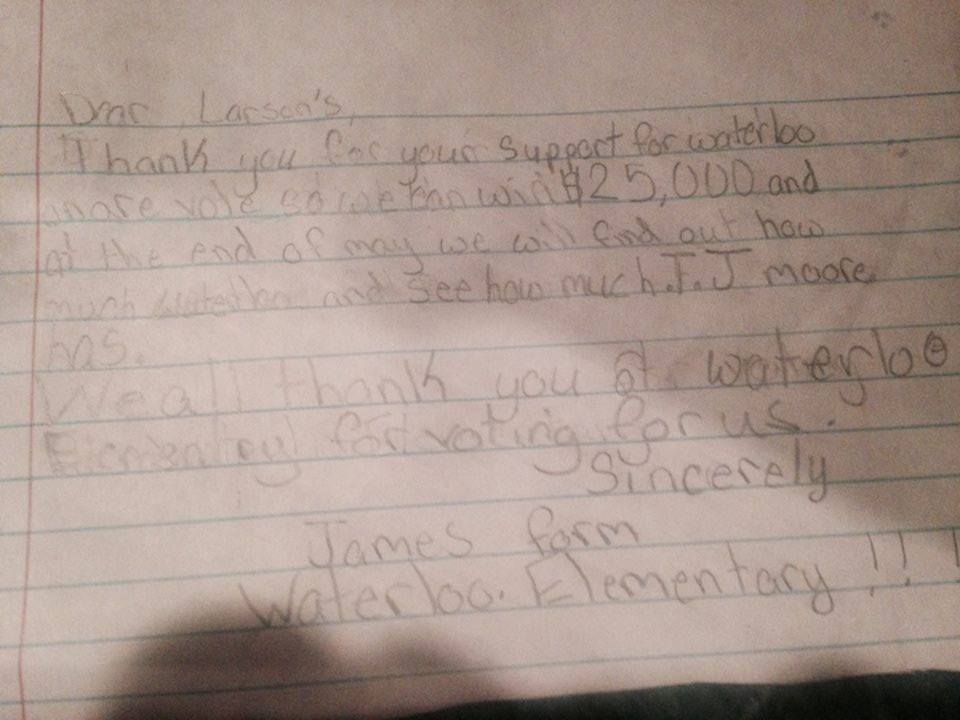 Dear Larson's,
Thank you for your support for waterloo
more vote so we can win $25,000 and
at the end of may we will find out how
much waterloo and see how much T.J moore
has.
We all thank you at waterloo
Elementey for voting for us.
Sincerely
James form
Waterloo. Elementary !!!